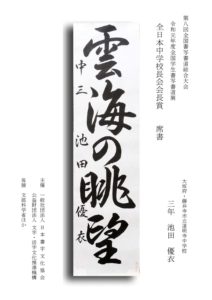 第八回全国書写書道総合大会
令和元年度全国学生書写書道展
全日本中学校長会会長賞　席書
大阪府・藤井寺市立道明寺中学校
三年　池田　優衣
雲海の眺望
中三　池田優衣
主催　一般社団法人日本書字文化協会
公益財団法人文字・活字文化推進機構
後援　文部科学省ほか